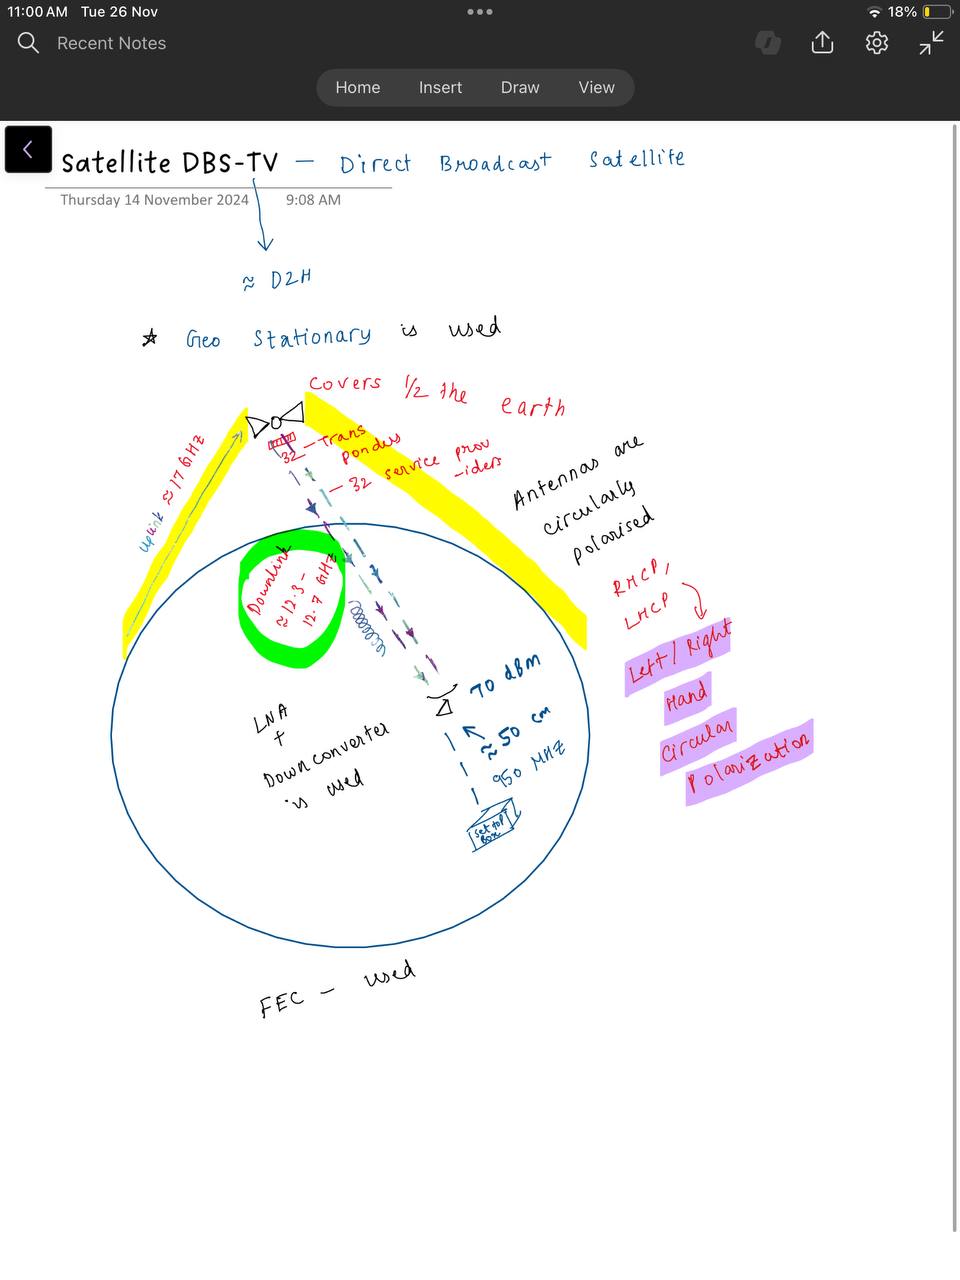 11:00 AM Tue 26 Nov
18%
Recent Notes
Home Insert Draw View
Satellite DBS-TV — Direct Broadcast Satellite
Thursday 14 November 2024 9:08 AM
≈ D2H
☆ Geo Stationary is used
Covers 1/2 the earth
32 — Trans
ponders
— 32 service prov
-iders
uplink ≈ 17 GHz
Antennas are
circularly
polarised
RHCP,
LHCP
Left / Right
Hand
Circular
Polarization
Downlink
≈ 12.3 -
12.7 GHz
70 dBm
≈ 50 cm
950 MHz
LNA
+
Down converter
is used
Set top
Box
FEC — used